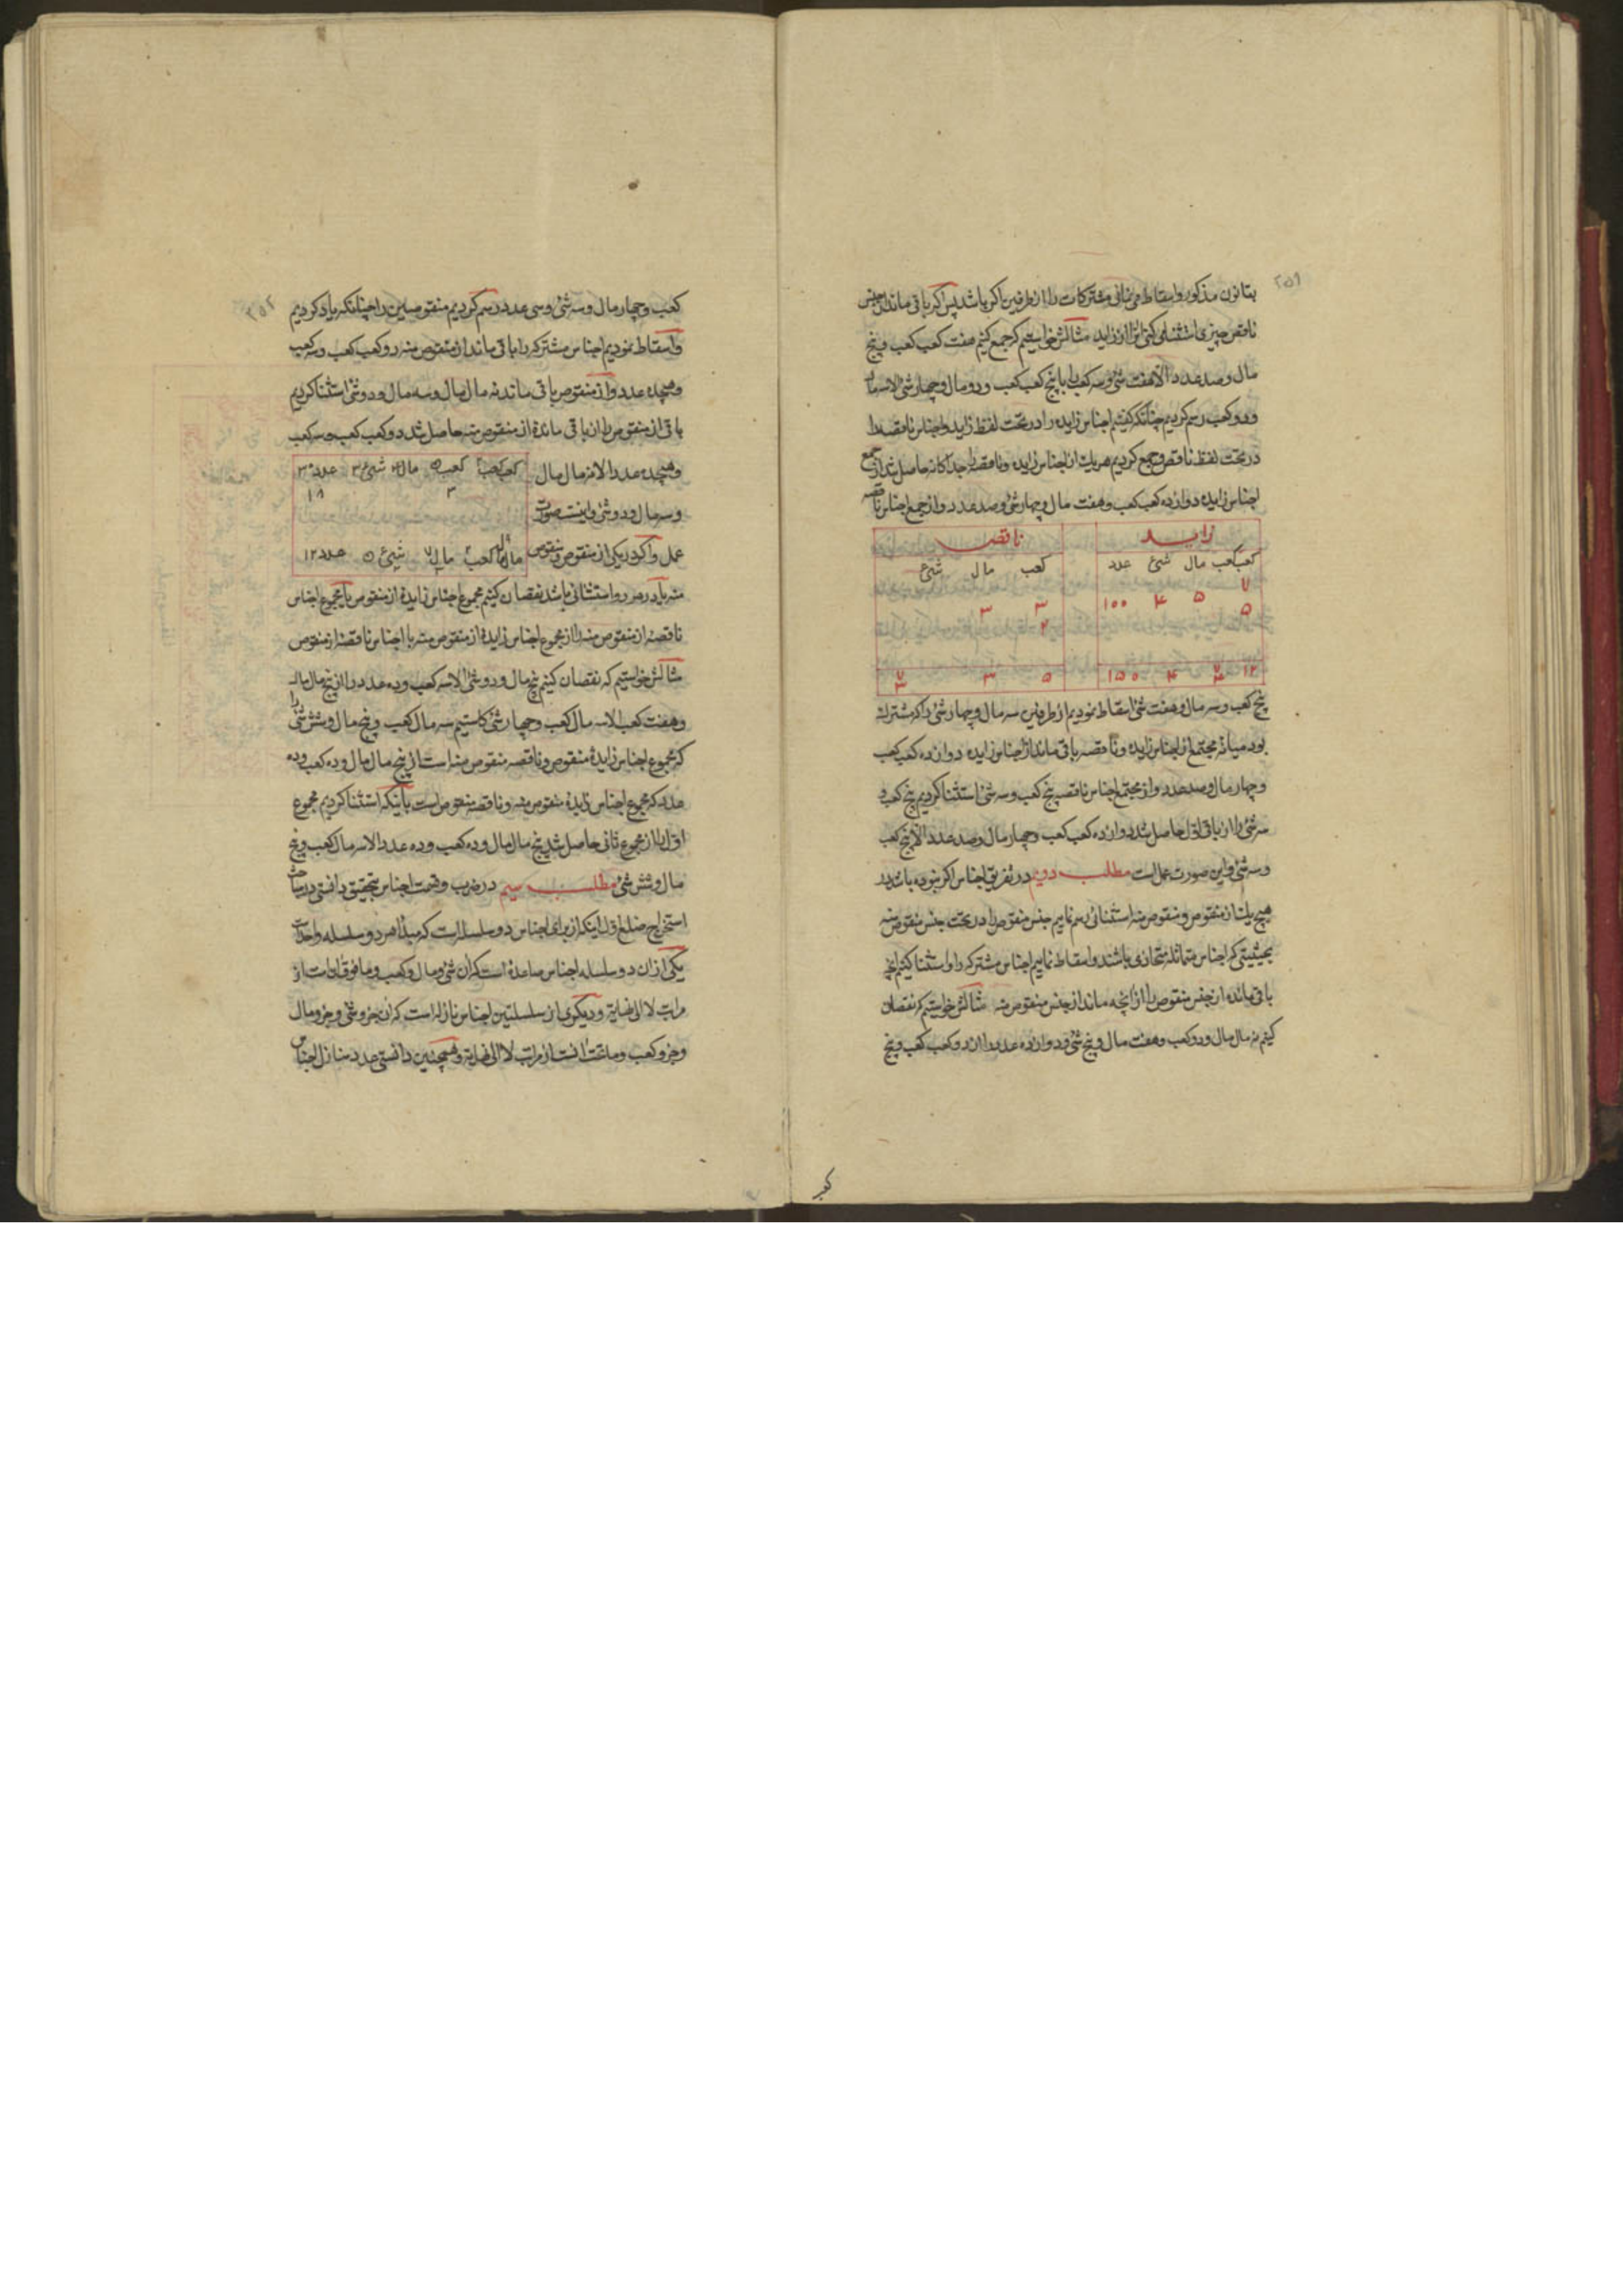 ۲۵۱
بقانون مذکور واسقاط می‌نمائی مشترکات را از طرفین اکر باشد پس اکر باقی ماند از جنس
ناقص چیزی استثنا می‌کنی آنرا از زاید مثالش خواستیم که جمع کنیم هفت کعب کعب و پنج
مال و صد عدد الا هفت شئ و سه کعب را با پنج کعب کعب و دو مال و چهار شئ الا سه مال
و دو کعب رسم کردیم چنانکه کفتیم اجناس زایده را در تحت لفظ زاید و اجناس ناقصه را
در تحت لفظ ناقص و جمع کردیم هریک از اجناس زایده و ناقصه را جداکانه حاصل شد از جمع
اجناس زایده دوازده کعب کعب و هفت مال و چهار شئ و صد عدد و از جمع اجناس ناقصه
زاید ناقص
کعب کعب مال شئ عدد کعب مال شئ
۷ ۵ ۴ ۱۰۰ ۳ ۳
۵ ۲
۱۲ ۷ ۴ ۴ ۱۵۰ ۵ ۳ ۷ ۳
پنج کعب و سه مال و هفت شئ اسقاط نمودیم از طرفین سه مال و چهار شئ را که مشترک
بود میانه مجتمع از اجناس زایده و ناقصه باقی ماند از اجناس زایده دوازده کعب کعب
و چهار مال و صد عدد و از مجتمع اجناس ناقصه پنج کعب و سه شئ استثنا کردیم پنج کعب و
سه شئ را از باقی اول حاصل شد دوازده کعب کعب و چهار مال و صد عدد الا پنج کعب
و سه شئ و این صورت عمل است مطلب دویم در تفریق اجناس اکر نبوده باشد در
هیچ یک از منقوص و منقوص منه استثنائی رسم نماییم جنس منقوص را در تحت جنس منقوص منه
بحیثیتی که اجناس متماثله متحاذی باشند و اسقاط نماییم اجناس مشترکه را و استثنا کنیم آنچه
باقی مانده از جنس منقوص را از آنچه ماند از جنس منقوص منه مثالش خواستیم که نقصان
کنیم نه مال مال و دو کعب و هفت مال و پنج شئ و دوازده عدد را از دو کعب کعب و پنج
کعب
۲۵۲
کعب و چهار مال و سه شئ و سی عدد رسم کردیم منقوصین را چنانکه یاد کردیم
و اسقاط نمودیم اجناس مشترکه را باقی ماند از منقوص منه دو کعب کعب و سه کعب
و هیجده عدد و از منقوص باقی ماند نه مال مال و سه مال و دو شئ استثنا کردیم
باقی از منقوص را از باقی مانده از منقوص منه حاصل شد دو کعب کعب و سه کعب
و هیجده عدد الا نه مال مال
کعب کعب ۲ کعب ۵ مال ۴ شئ ۳ عدد ۳۰
۳ ۱۸
و سه مال و دو شئ و اینست صورت
عمل و اکر در یکی از منقوص و منقوص
مال مال ۹ کعب ۲ مال ۷ شئ ۵ عدد ۱۲
منه یا در هر دو استثنائی باشد نقصان کنیم مجموع اجناس زایدۀ از منقوص با مجموع اجناس
ناقصۀ از منقوص منه را از مجموع اجناس زایدۀ از منقوص منه با اجناس ناقصۀ از منقوص
مثالش خواستیم که نقصان کنیم پنج مال و دو شئ الا سه کعب و ده عدد را از پنج مال مال
و هفت کعب الا سه مال کعب و چهار شئ کاستیم سه مال کعب و پنج مال و شش شئ را
که مجموع اجناس زایدۀ منقوص و ناقصه منقوص منه است از پنج مال مال و ده کعب و ده
عدد که مجموع اجناس زایدۀ منقوص منه و ناقصه منقوص است باینکه استثنا کردیم مجموع
اول را از مجموع ثانی حاصل شد پنج مال مال و ده کعب و ده عدد الا سه مال کعب و پنج
مال و شش شئ مطلب سیم در ضرب و قسمت اجناس بتحقیق دانستی در مباحث
استخراج ضلع اول اینکه از برای اجناس دو سلسله است که مبدأ هر دو سلسله واحد است
یکی از آن دو سلسله اجناس صاعدۀ است که آن شئ و مال و کعب و ما فوق آنات از
مراتب لا الی نهایة و دیکری از سلسلتین اجناس نازله است که آن جزو شئ و جزو مال
و جزو کعب و ما تحت آنست از مراتب لا الی نهایة و همچنین دانستی عدد منازل اجناس